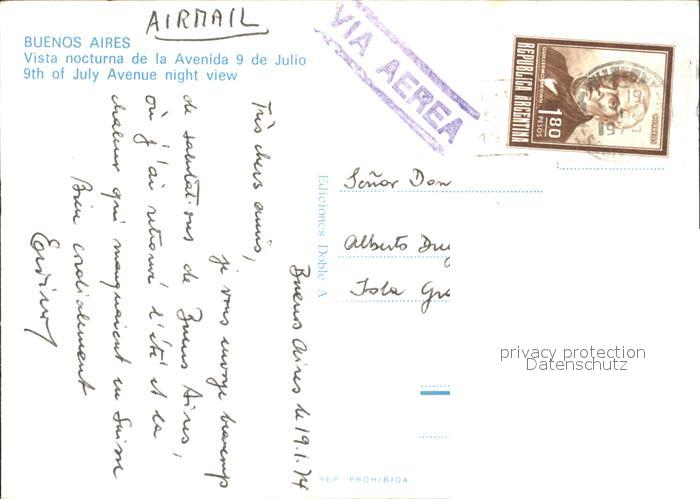 AIRMAIL
BUENOS AIRES
Vista nocturna de la Avenida 9 de Julio
9th of July Avenue night view
VIA AEREA
REPUBLICA ARGENTINA
GUILLERMO BROWN
1.80
PESOS
Ediciones Doble A
REP. PROHIBIDA
Buenos Aires le 19.1.74
Très chers amis,
je vous envoye beaucoup
de salutations de Buenos Aires,
où j'ai retrouvé l'été et la
chaleur qui manquaient en Suisse
Bien cordialement
Señor Don
Alberto
Isla
privacy protection
Datenschutz